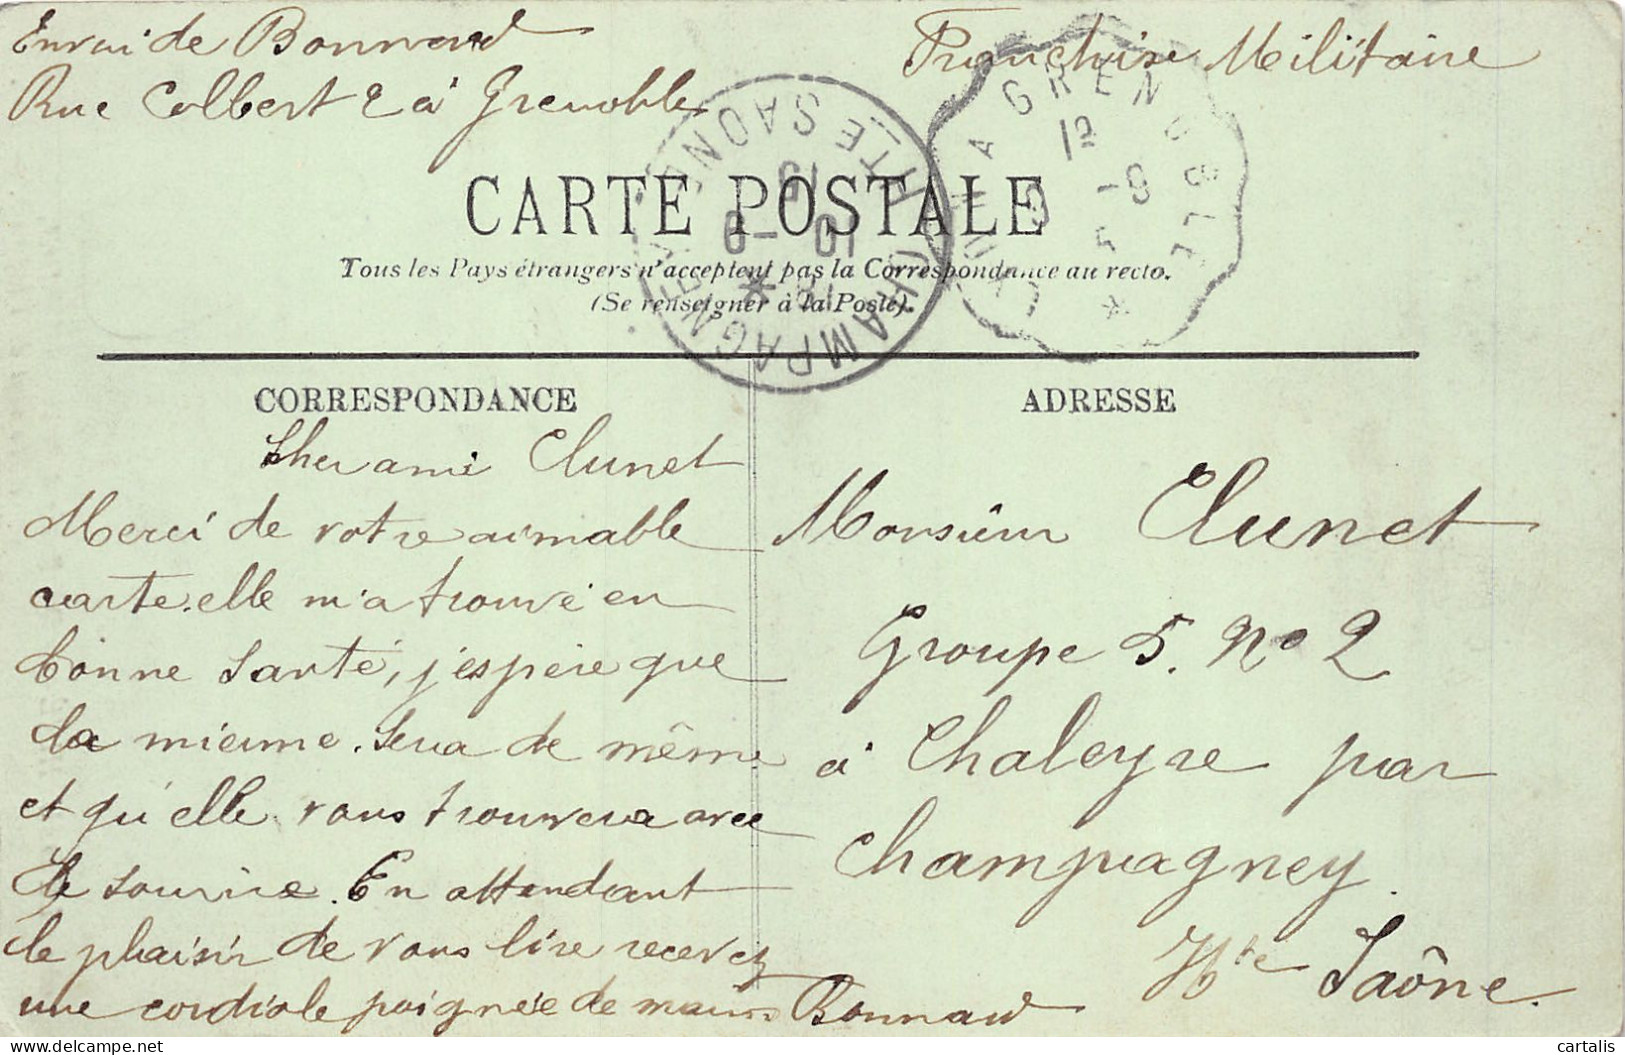 Envoi de Bonnard
Rue Colbert 2 à Grenoble
Franchise Militaire
CARTE POSTALE
Tous les Pays étrangers n'acceptent pas la Correspondance au recto.
(Se renseigner à la Poste).
CHAMPAGNEY
HTE SAONE
10 - 9
A GRENOBLE
12
5 - 9
CORRESPONDANCE
Cher ami Clunet
Merci de votre aimable
carte. elle m'a trouvé en
bonne santé, j'espère que
la mienne. sera de même
et qu'elle vous trouvera avec
le sourire. En attendant
le plaisir de vous lire recevez
une cordiale poignée de mains Bonnard
ADRESSE
Monsieur Clunet
Groupe 5. No 2
à Chaleyre par
Champagney.
Hte Saône.
cartalis